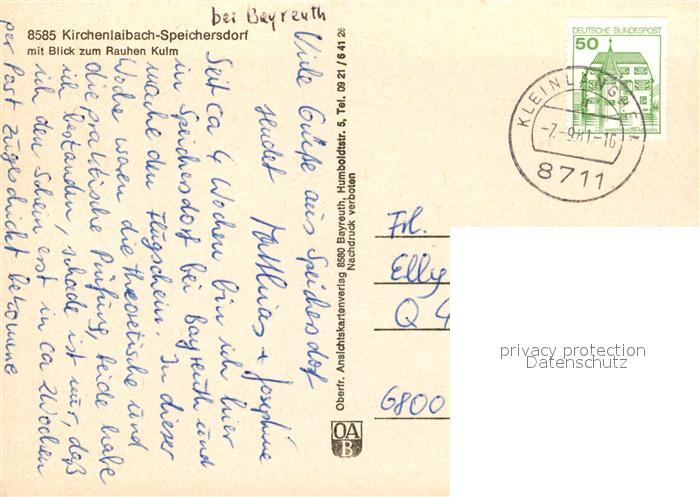 bei Bayreuth
8585 Kirchenlaibach-Speichersdorf
mit Blick zum Rauhen Kulm
Viele Grüße aus Speichersdorf
sendet Matthias + Josephine
Seit ca 4 Wochen bin ich hier
in Speichersdorf bei Bayreuth und
mache den Flugschein. In dieser
Woche waren die theoretische und
die praktische Prüfung, beide habe
ich bestanden, schade ist nur, daß
ich den Schein erst in ca 2 Wochen
per Post zugeschickt bekomme
Oberfr. Ansichtskartenverlag 8580 Bayreuth, Humboldtstr. 5, Tel. 09 21 / 6 41 26
Nachdruck verboten
OA
B
DEUTSCHE BUNDESPOST
50
-7.-9.81-16
8711
Frl.
Elly
Q 4
6800
privacy protection
Datenschutz